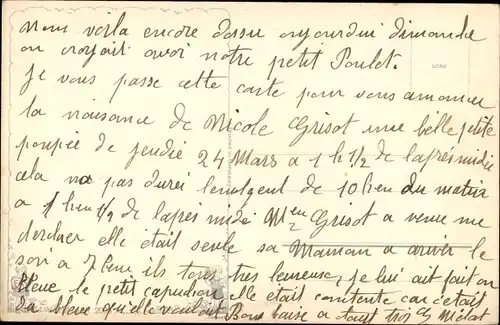 nous voila encore dasser aujourdui dimanche
on croyait avoi notre petit Poulet.
Je vous passe cette carte pour vous amoncer
la naisance de Nicole Grisot une belle petite
poupée de jeudie 24 Mars a 1 h 1/2 de laprés midie
cela na pas durei lentgent de 10 heu du matin
a 1 heu 1/2 de lapres midi Men Grisot a venue me
chercher elle était seule sa Maman a arriver le
soir a 7 heu ils tous tres heureuse, je lui ait fait en
bleue le petit capuchon elle était contente car cetait
du bleue qu'elle voulait Bons baise a tous